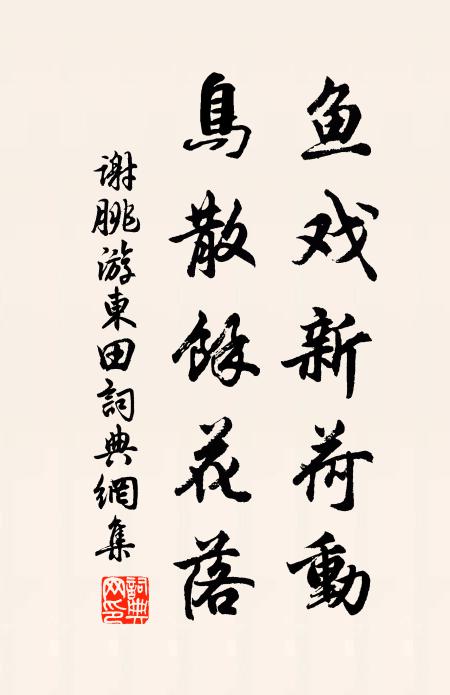 鱼戏新荷動
鳥散餘花落
谢朓游東田詞典網集
詞典網印